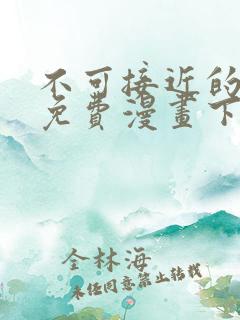 不可接近的
免費漫畫下
全林海
未经同意禁止转载